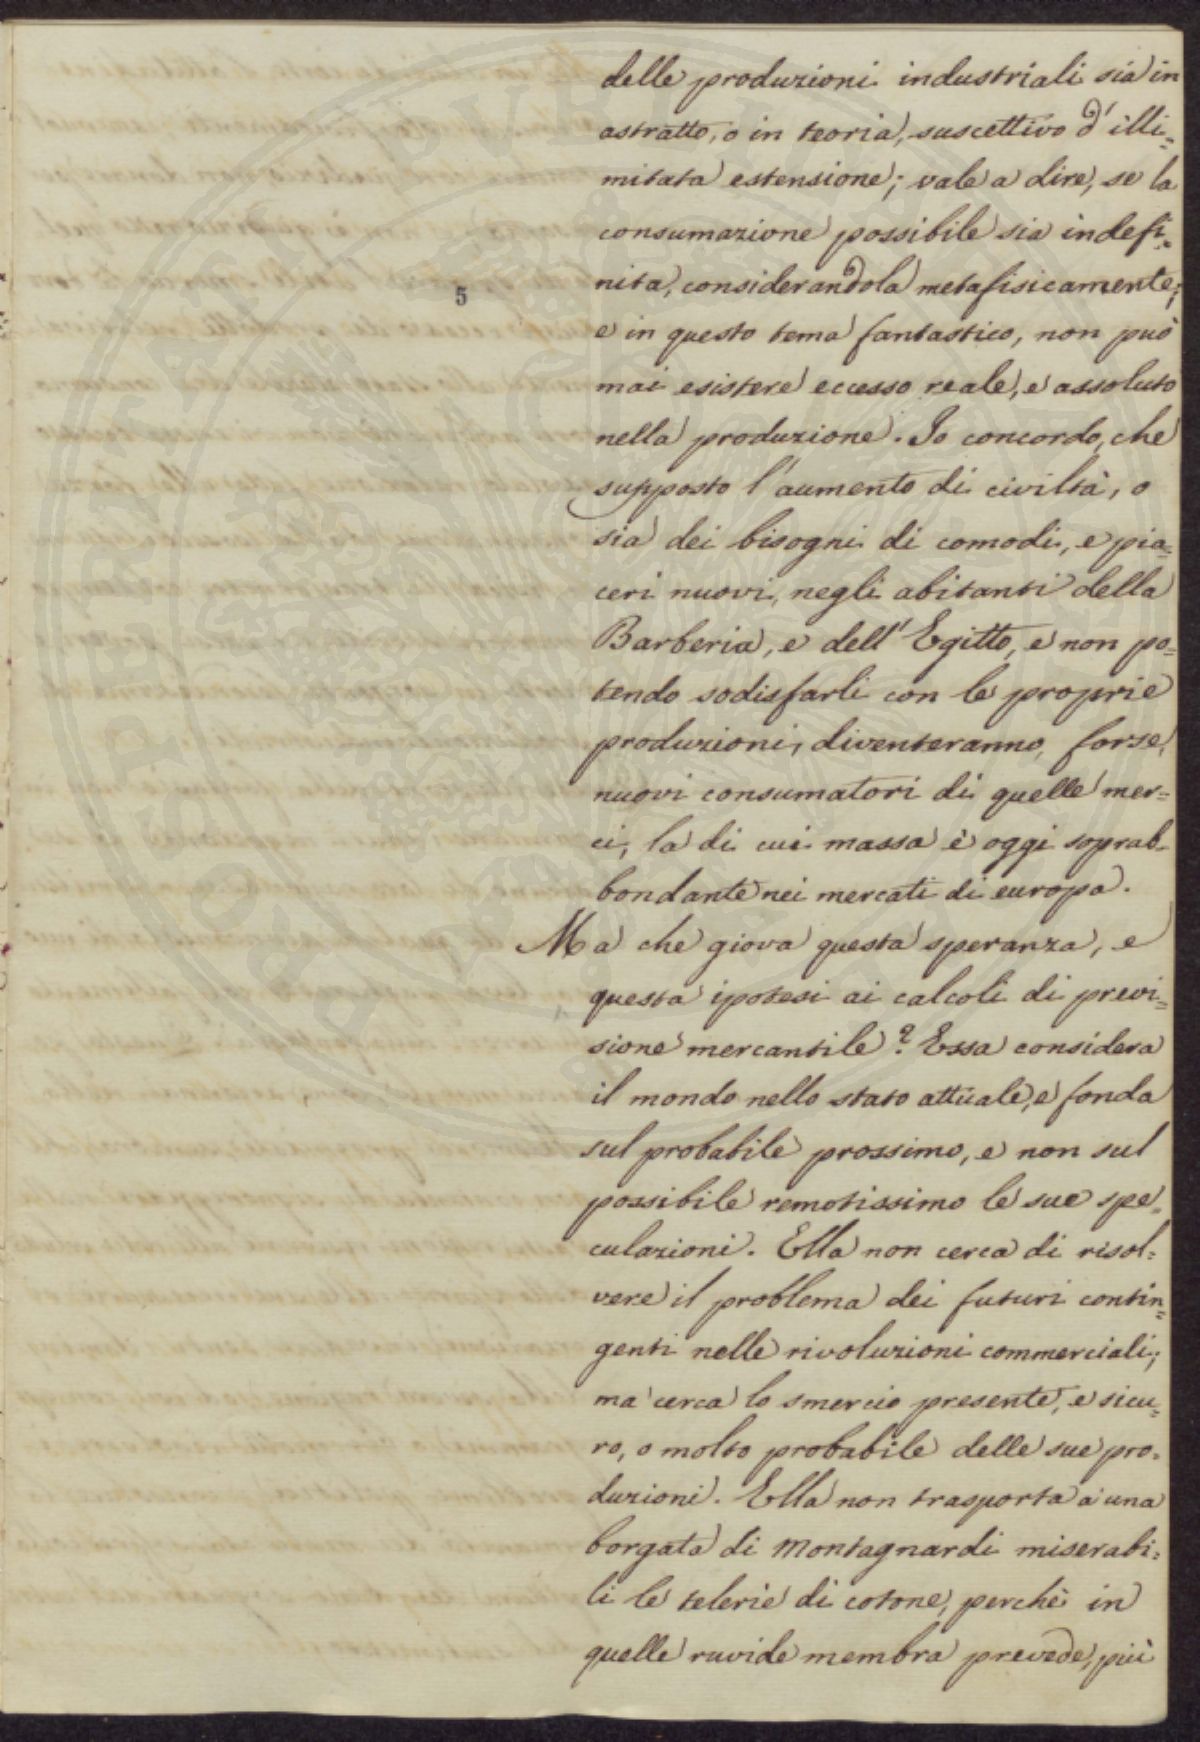 delle produzioni industriali sia in
astratto, o in teoria, suscettivo d'illi=
mitata estensione; vale a dire, se la
consumazione possibile sia indefi=
nita, considerandola metafisicamente;
5
e in questo tema fantastico, non può
mai esistere eccesso reale, e assoluto
nella produzione. Io concordo, che
supposto l'aumento di civiltà, o
sia dei bisogni di comodi, e pia=
ceri nuovi, negli abitanti della
Barberia, e dell'Egitto, e non po=
tendo sodisfarli con le proprie
produzioni, diventeranno, forse,
nuovi consumatori di quelle mer=
ci, la di cui massa è oggi soprab=
bondante nei mercati di europa.
Ma che giova questa speranza, e
questa ipotesi ai calcoli di previ=
sione mercantile? Essa considera
il mondo nello stato attuale, e fonda
sul probabile prossimo, e non sul
possibile remotissimo le sue spe=
culazioni. Ella non cerca di risol=
vere il problema dei futuri contin=
genti nelle rivoluzioni commerciali;
ma cerca lo smercio presente, e sicu=
ro, o molto probabile delle sue pro=
duzioni. Ella non trasporta a una
borgata di Montagnardi miserabi=
li le telerie di cotone, perchè in
quelle ruvide membra prevede, più